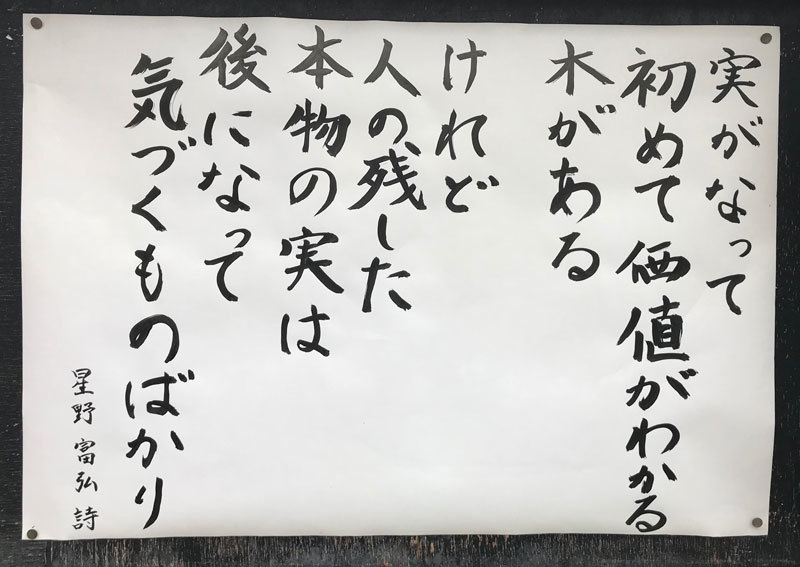 実がなって
初めて価値がわかる
木がある
けれど
人の残した
本物の実は
後になって
気づくものばかり
星野富弘 詩